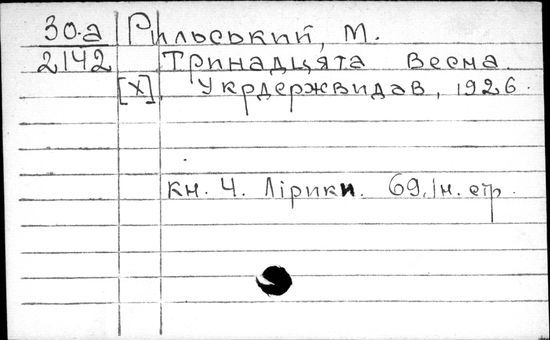 30.а Рильський, М.
2142 Тринадцята весна.
[Х] Укрдержвидав, 1926.
кн. 4. Лірики. 69,1н. стр.